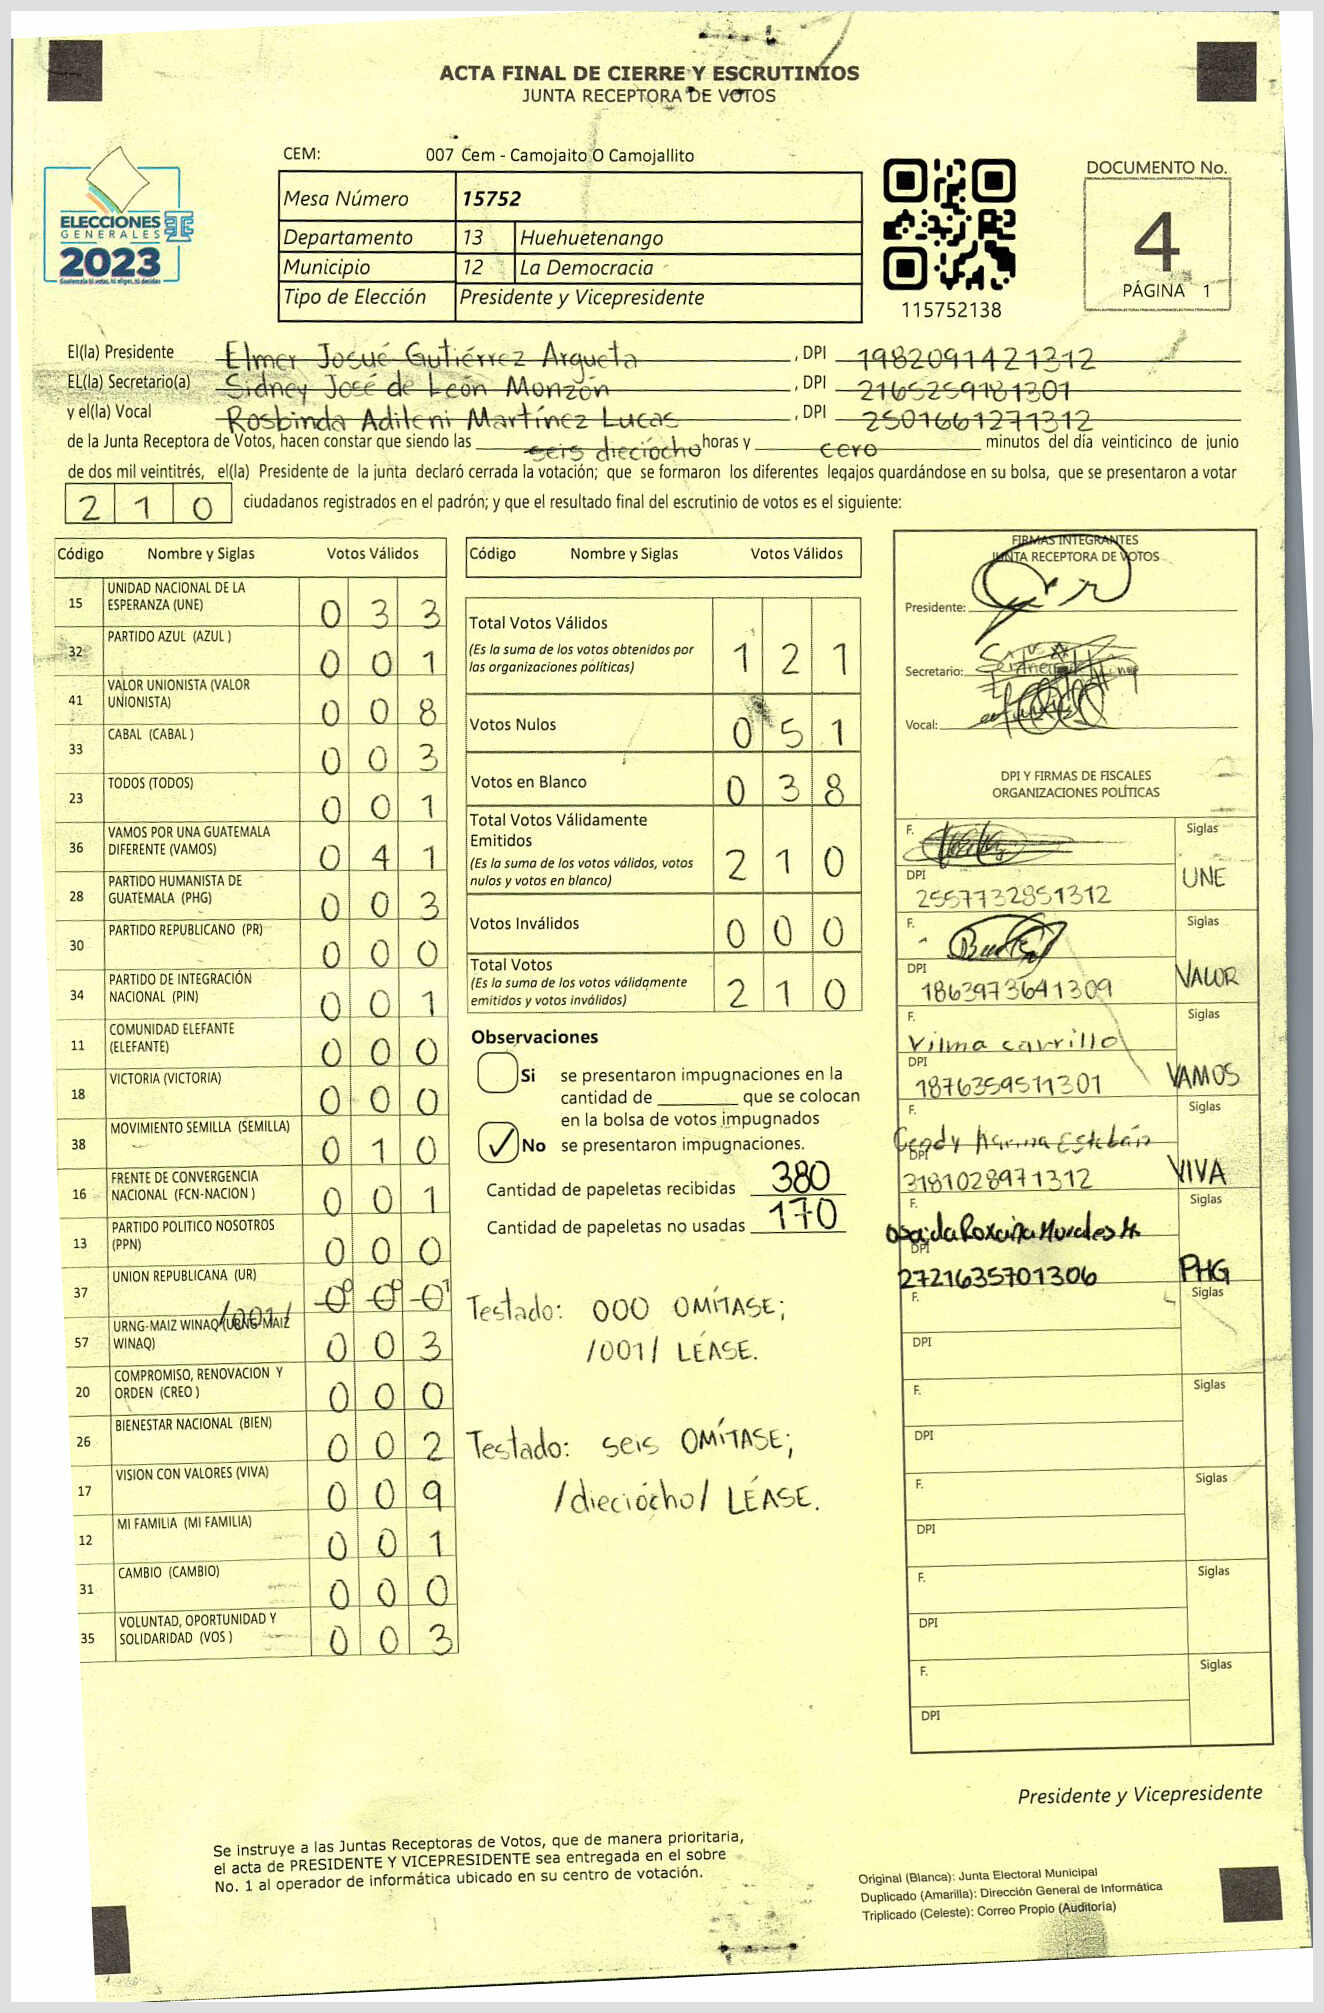 ACTA FINAL DE CIERRE Y ESCRUTINIOS
JUNTA RECEPTORA DE VOTOS
CEM: 007 Cem - Camojaito O Camojallito
ELECCIONES
GENERALES
2023
Guatemala tú votas, tú eliges, tú decides
Mesa Número 15752
Departamento 13 Huehuetenango
Municipio 12 La Democracia
Tipo de Elección Presidente y Vicepresidente
115752138
DOCUMENTO No.
4
PÁGINA 1
El(la) Presidente Elmer Josué Gutiérrez Argueta, DPI 1982091421312
EL(la) Secretario(a) Sidney José de León Monzón, DPI 2165259181301
y el(la) Vocal Rosbinda Adileni Martínez Lucas, DPI 2501661271312
de la Junta Receptora de Votos, hacen constar que siendo las seis dieciócho horas y cero minutos del día veinticinco de junio
de dos mil veintitrés, el(la) Presidente de la junta declaró cerrada la votación; que se formaron los diferentes legajos quardándose en su bolsa, que se presentaron a votar
210 ciudadanos registrados en el padrón; y que el resultado final del escrutinio de votos es el siguiente:
Código Nombre y Siglas Votos Válidos
15 UNIDAD NACIONAL DE LA ESPERANZA (UNE) 033
32 PARTIDO AZUL (AZUL ) 001
41 VALOR UNIONISTA (VALOR UNIONISTA) 008
33 CABAL (CABAL ) 003
23 TODOS (TODOS) 001
36 VAMOS POR UNA GUATEMALA DIFERENTE (VAMOS) 041
28 PARTIDO HUMANISTA DE GUATEMALA (PHG) 003
30 PARTIDO REPUBLICANO (PR) 000
34 PARTIDO DE INTEGRACIÓN NACIONAL (PIN) 001
11 COMUNIDAD ELEFANTE (ELEFANTE) 000
18 VICTORIA (VICTORIA) 000
38 MOVIMIENTO SEMILLA (SEMILLA) 010
16 FRENTE DE CONVERGENCIA NACIONAL (FCN-NACION ) 001
13 PARTIDO POLITICO NOSOTROS (PPN) 000
37 UNION REPUBLICANA (UR) 000 001
/001/
57 URNG-MAIZ WINAQ (URNG-MAIZ WINAQ) 003
20 COMPROMISO, RENOVACION Y ORDEN (CREO ) 000
26 BIENESTAR NACIONAL (BIEN) 002
17 VISION CON VALORES (VIVA) 009
12 MI FAMILIA (MI FAMILIA) 001
31 CAMBIO (CAMBIO) 000
35 VOLUNTAD, OPORTUNIDAD Y SOLIDARIDAD (VOS ) 003
Código Nombre y Siglas Votos Válidos
Total Votos Válidos 121
(Es la suma de los votos obtenidos por
las organizaciones políticas)
Votos Nulos 051
Votos en Blanco 038
Total Votos Válidamente
Emitidos 210
(Es la suma de los votos válidos, votos
nulos y votos en blanco)
Votos Inválidos 000
Total Votos 210
(Es la suma de los votos válidamente
emitidos y votos inválidos)
Observaciones
Si se presentaron impugnaciones en la
cantidad de ________ que se colocan
en la bolsa de votos impugnados
✓ No se presentaron impugnaciones.
Cantidad de papeletas recibidas 380
Cantidad de papeletas no usadas 170
Testado: 000 OMÍTASE;
/001/ LÉASE.
Testado: seis OMÍTASE;
/dieciócho/ LÉASE.
FIRMAS INTEGRANTES
JUNTA RECEPTORA DE VOTOS
Presidente:
Secretario:
Vocal:
DPI Y FIRMAS DE FISCALES
ORGANIZACIONES POLÍTICAS
F. Siglas
DPI 2557732851312 UNE
F. Siglas
DPI 1863973641309 VALOR
F. Vilma carrillo Siglas
DPI 1876359511301 VAMOS
F. Karina Esteban Siglas
DPI 3181028971312 VIVA
F. Morales Siglas
DPI 2721635701306 PHG
F. Siglas
DPI
F. Siglas
DPI
F. Siglas
DPI
F. Siglas
DPI
F. Siglas
DPI
Presidente y Vicepresidente
Se instruye a las Juntas Receptoras de Votos, que de manera prioritaria,
el acta de PRESIDENTE Y VICEPRESIDENTE sea entregada en el sobre
No. 1 al operador de informática ubicado en su centro de votación.
Original (Blanca): Junta Electoral Municipal
Duplicado (Amarilla): Dirección General de Informática
Triplicado (Celeste): Correo Propio (Auditoría)